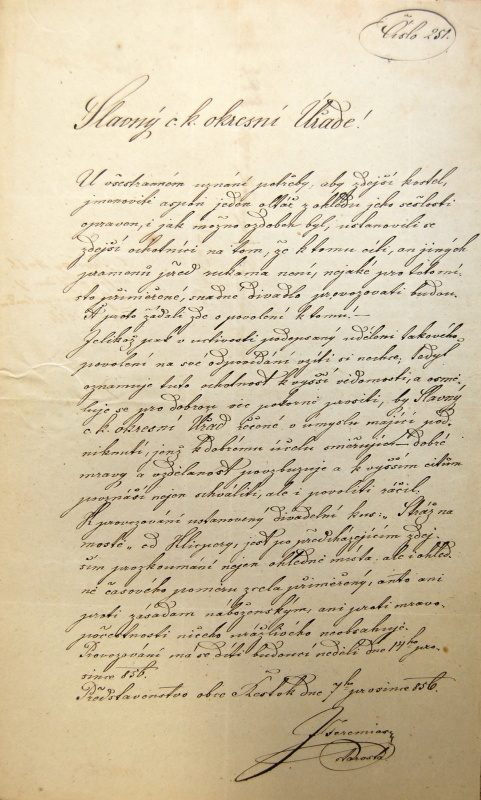 Číslo 251.
Slavný c. k. okresní Úřade!
U všestranném uznání potřeby, aby zdejší kostel,
jmenovitě aspoň jeden oltář z ohledu jeho sešlosti
opraven, i jak možno ozdoben byl, ustanovili se
zdejší ochotníci na tom, že k tomu cíli, an jiných
pramenů před rukama není, nejaké pro toto mí-
sto přiměřené, snadné divadlo provozovati budou.
A proto žádali zde o povolení k tomu.
Jelikož pak v uctivosti podepsaný udělení takového
povolení na své odpovídání vzíti si nechce, tedy
oznamuje tuto ochotnost k vyšší vědomosti, a osmě-
luje se pro dobrou věc pokorně prositi, by Slavný
c. k. okresní Úřad řečené v úmyslu mající pod-
niknutí, jenž k dobrému účelu směřujíc dobré
mravy a vzdělanost povzbuzuje a k vyšším citům
povznáší nejen schváliti, ale i povoliti ráčil.
K provozování ustanovený divadelní kus: „Stráž na
mostě" od Klicpery, jest po předcházejícím zdej-
ším prozkoumání nejen ohledně místa, ale i ohled-
ně časového poměru zcela přiměřený, anto ani
proti zásadam náboženským, ani proti mravo-
počestnosti ničeho urážlivého neobsahuje.
Provozování má se díti budoucí neděli dne 14ho pro-
since 856.
Představenstvo obce Řestok dne 7ho prosince 856.
Jeremias
starosta